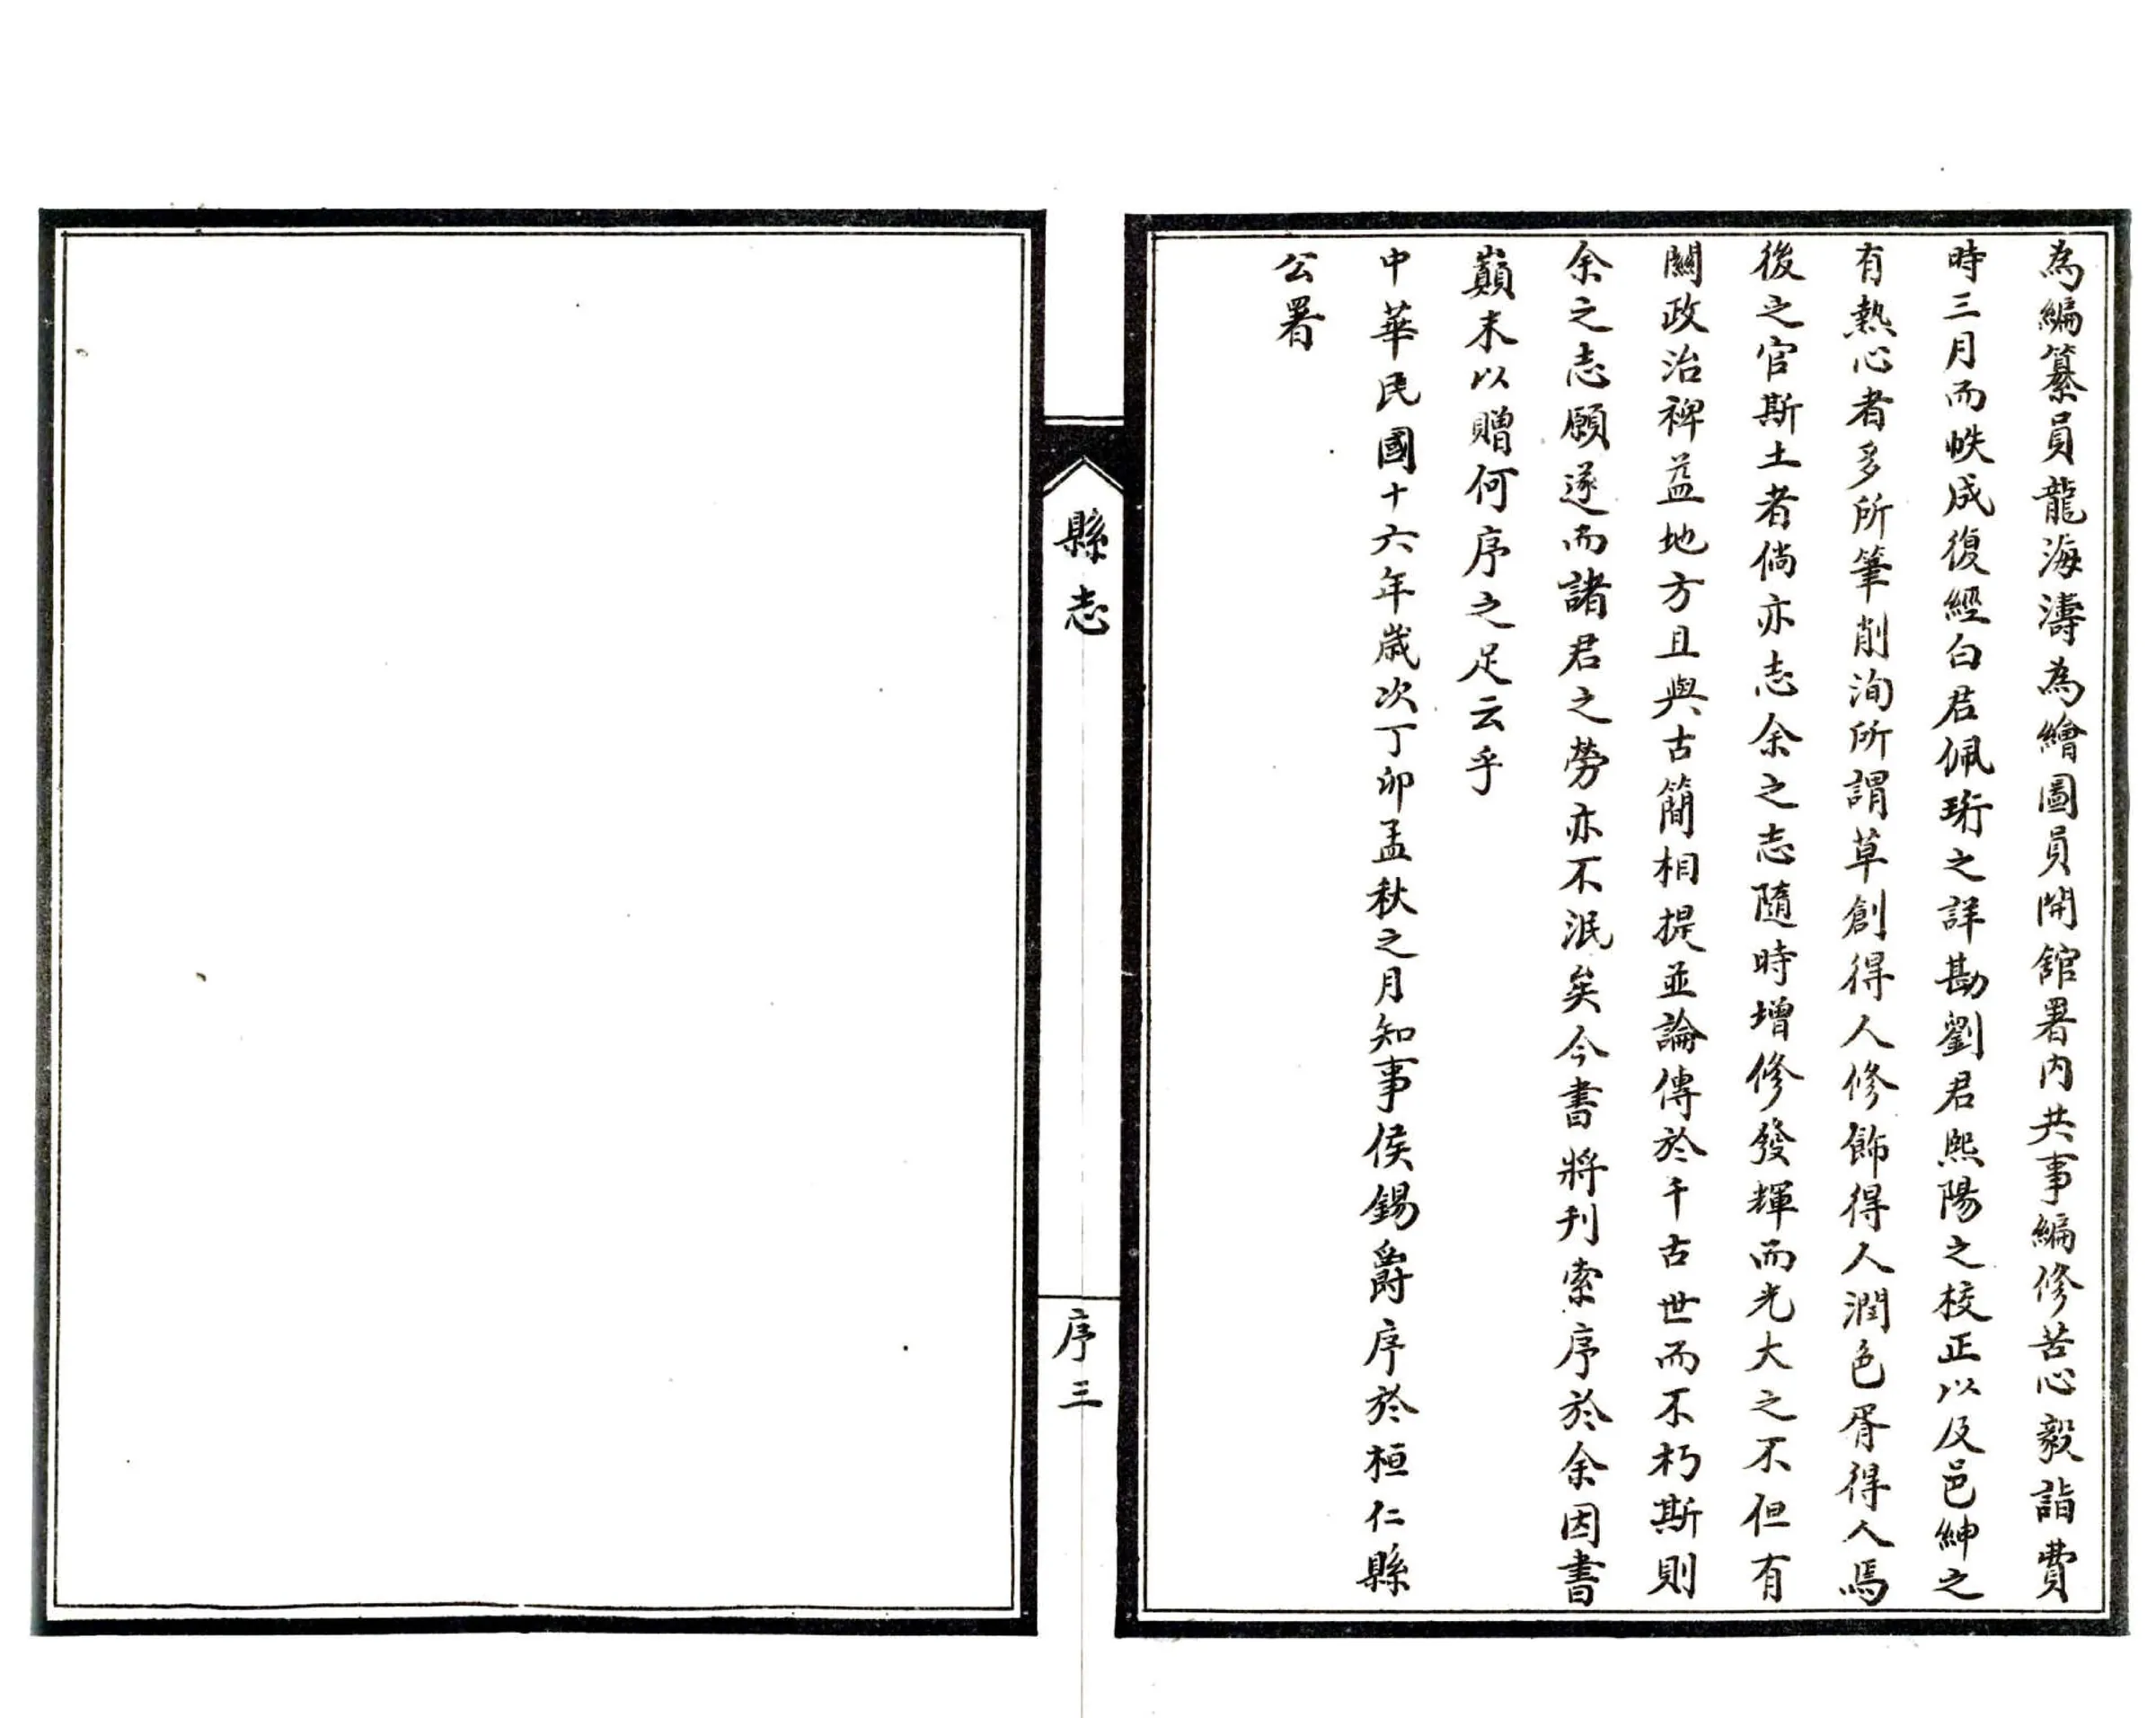 為編纂員龍海濤為繪圖員開館署内共事編修苦心毅詣費
時三月而帙成復經白君佩珩之詳勘劉君熙陽之校正以及邑紳之
有熱心者多所筆削洵所謂草創得人修飾得人潤色胥得人焉
後之官斯土者倘亦志余之志隨時增修發輝而光大之不但有
關政治裨益地方且與古簡相提並論傳於千古世而不朽斯則
余之志願遂而諸君之勞亦不泯矣今書將刋索序於余因書
巔末以贈何序之足云乎
中華民國十六年歲次丁卯孟秋之月知事侯錫爵序於桓仁縣
公署
縣志
序三